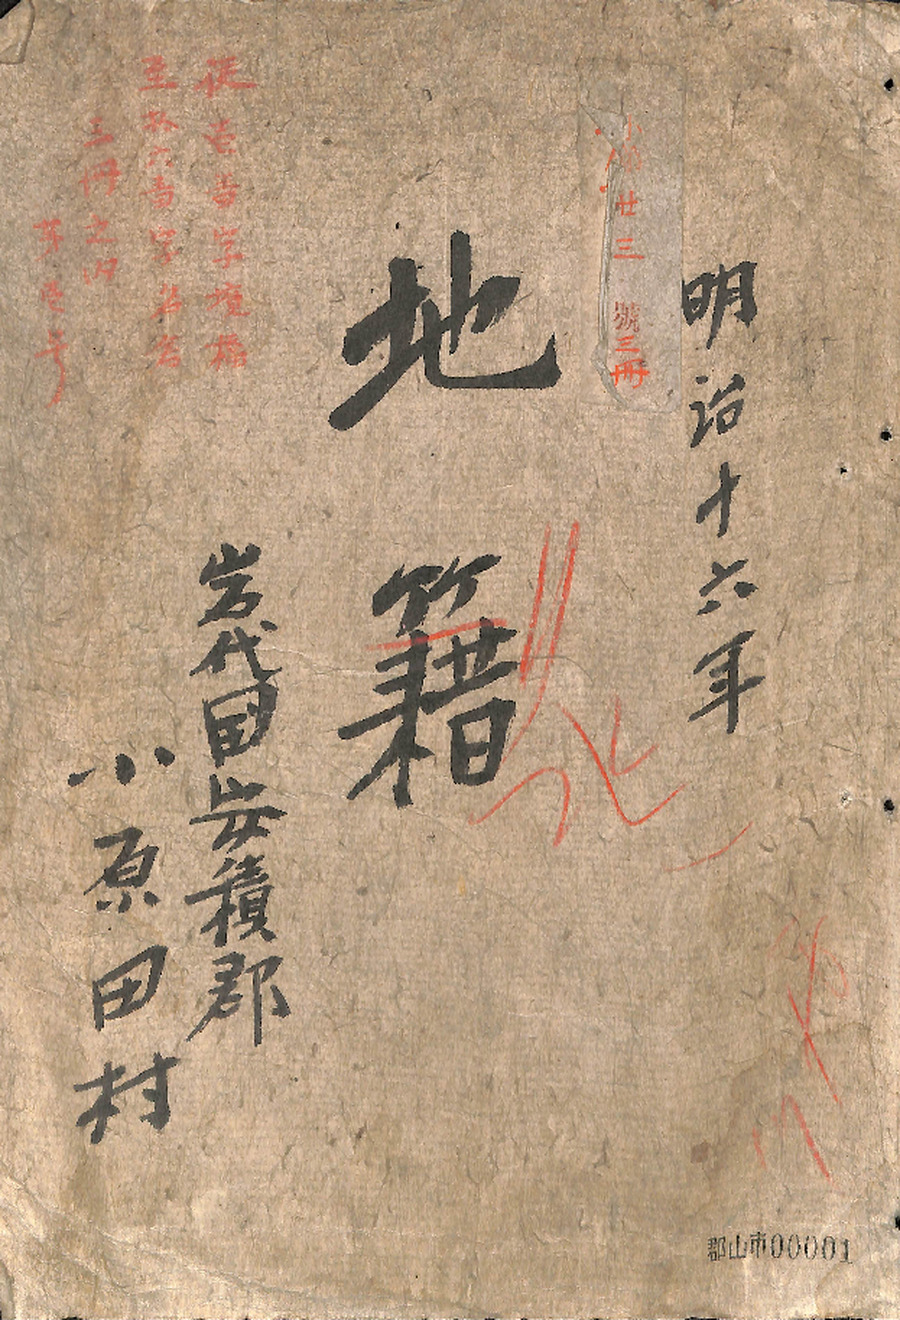 明治十六年
廿三號三冊
地籍
岩代國安積郡
小原田村
從壱番字境橋
至拾六番字名倉
三冊之内
第壱号
郡山市00001